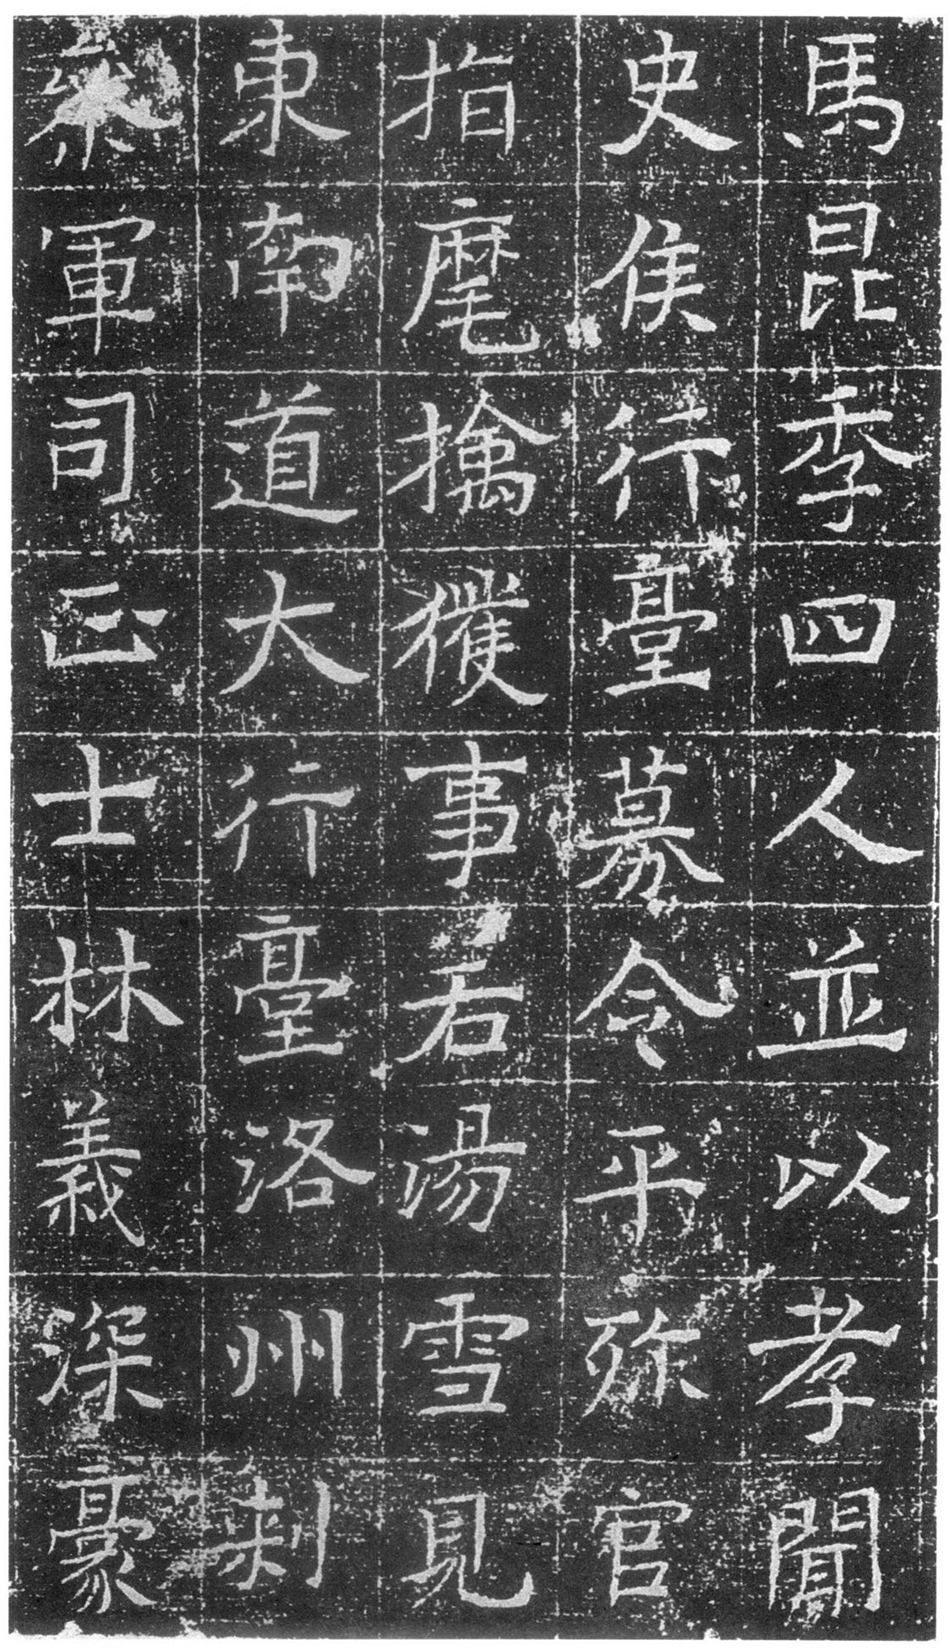 馬昆季四人並以孝聞
史侯行臺募令平殄官
指麾擒獲事若湯雪見
東南道大行臺洛州刺
軍司正士林義深豪